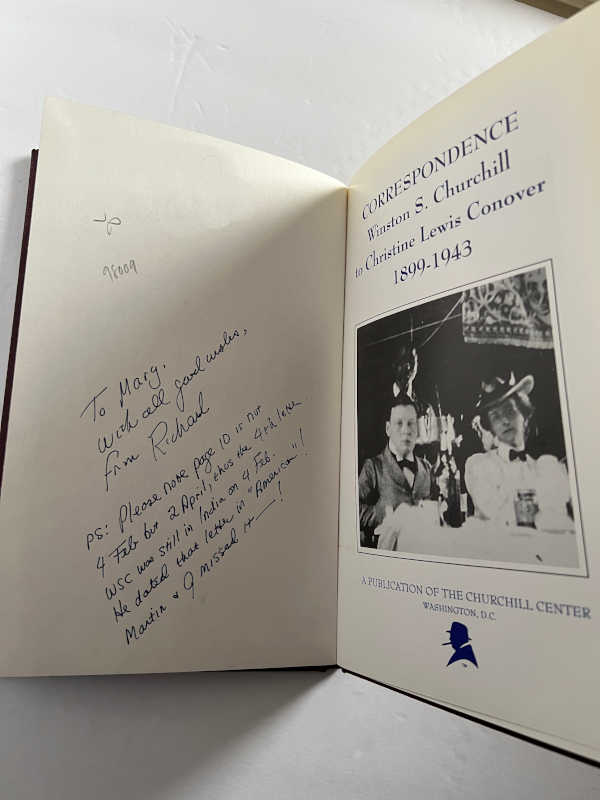 98009
To Mary.
With all good wishes,
From Richard
PS: Please note page 10 is not
4 Feb but 2 April, thus the 4th letter
WSC was still in India on 4 Feb.
He dated that letter in "American"!
Martin & I missed it —!
CORRESPONDENCE
Winston S. Churchill
to Christine Lewis Conover
1899-1943
A PUBLICATION OF THE CHURCHILL CENTER
WASHINGTON, D.C.